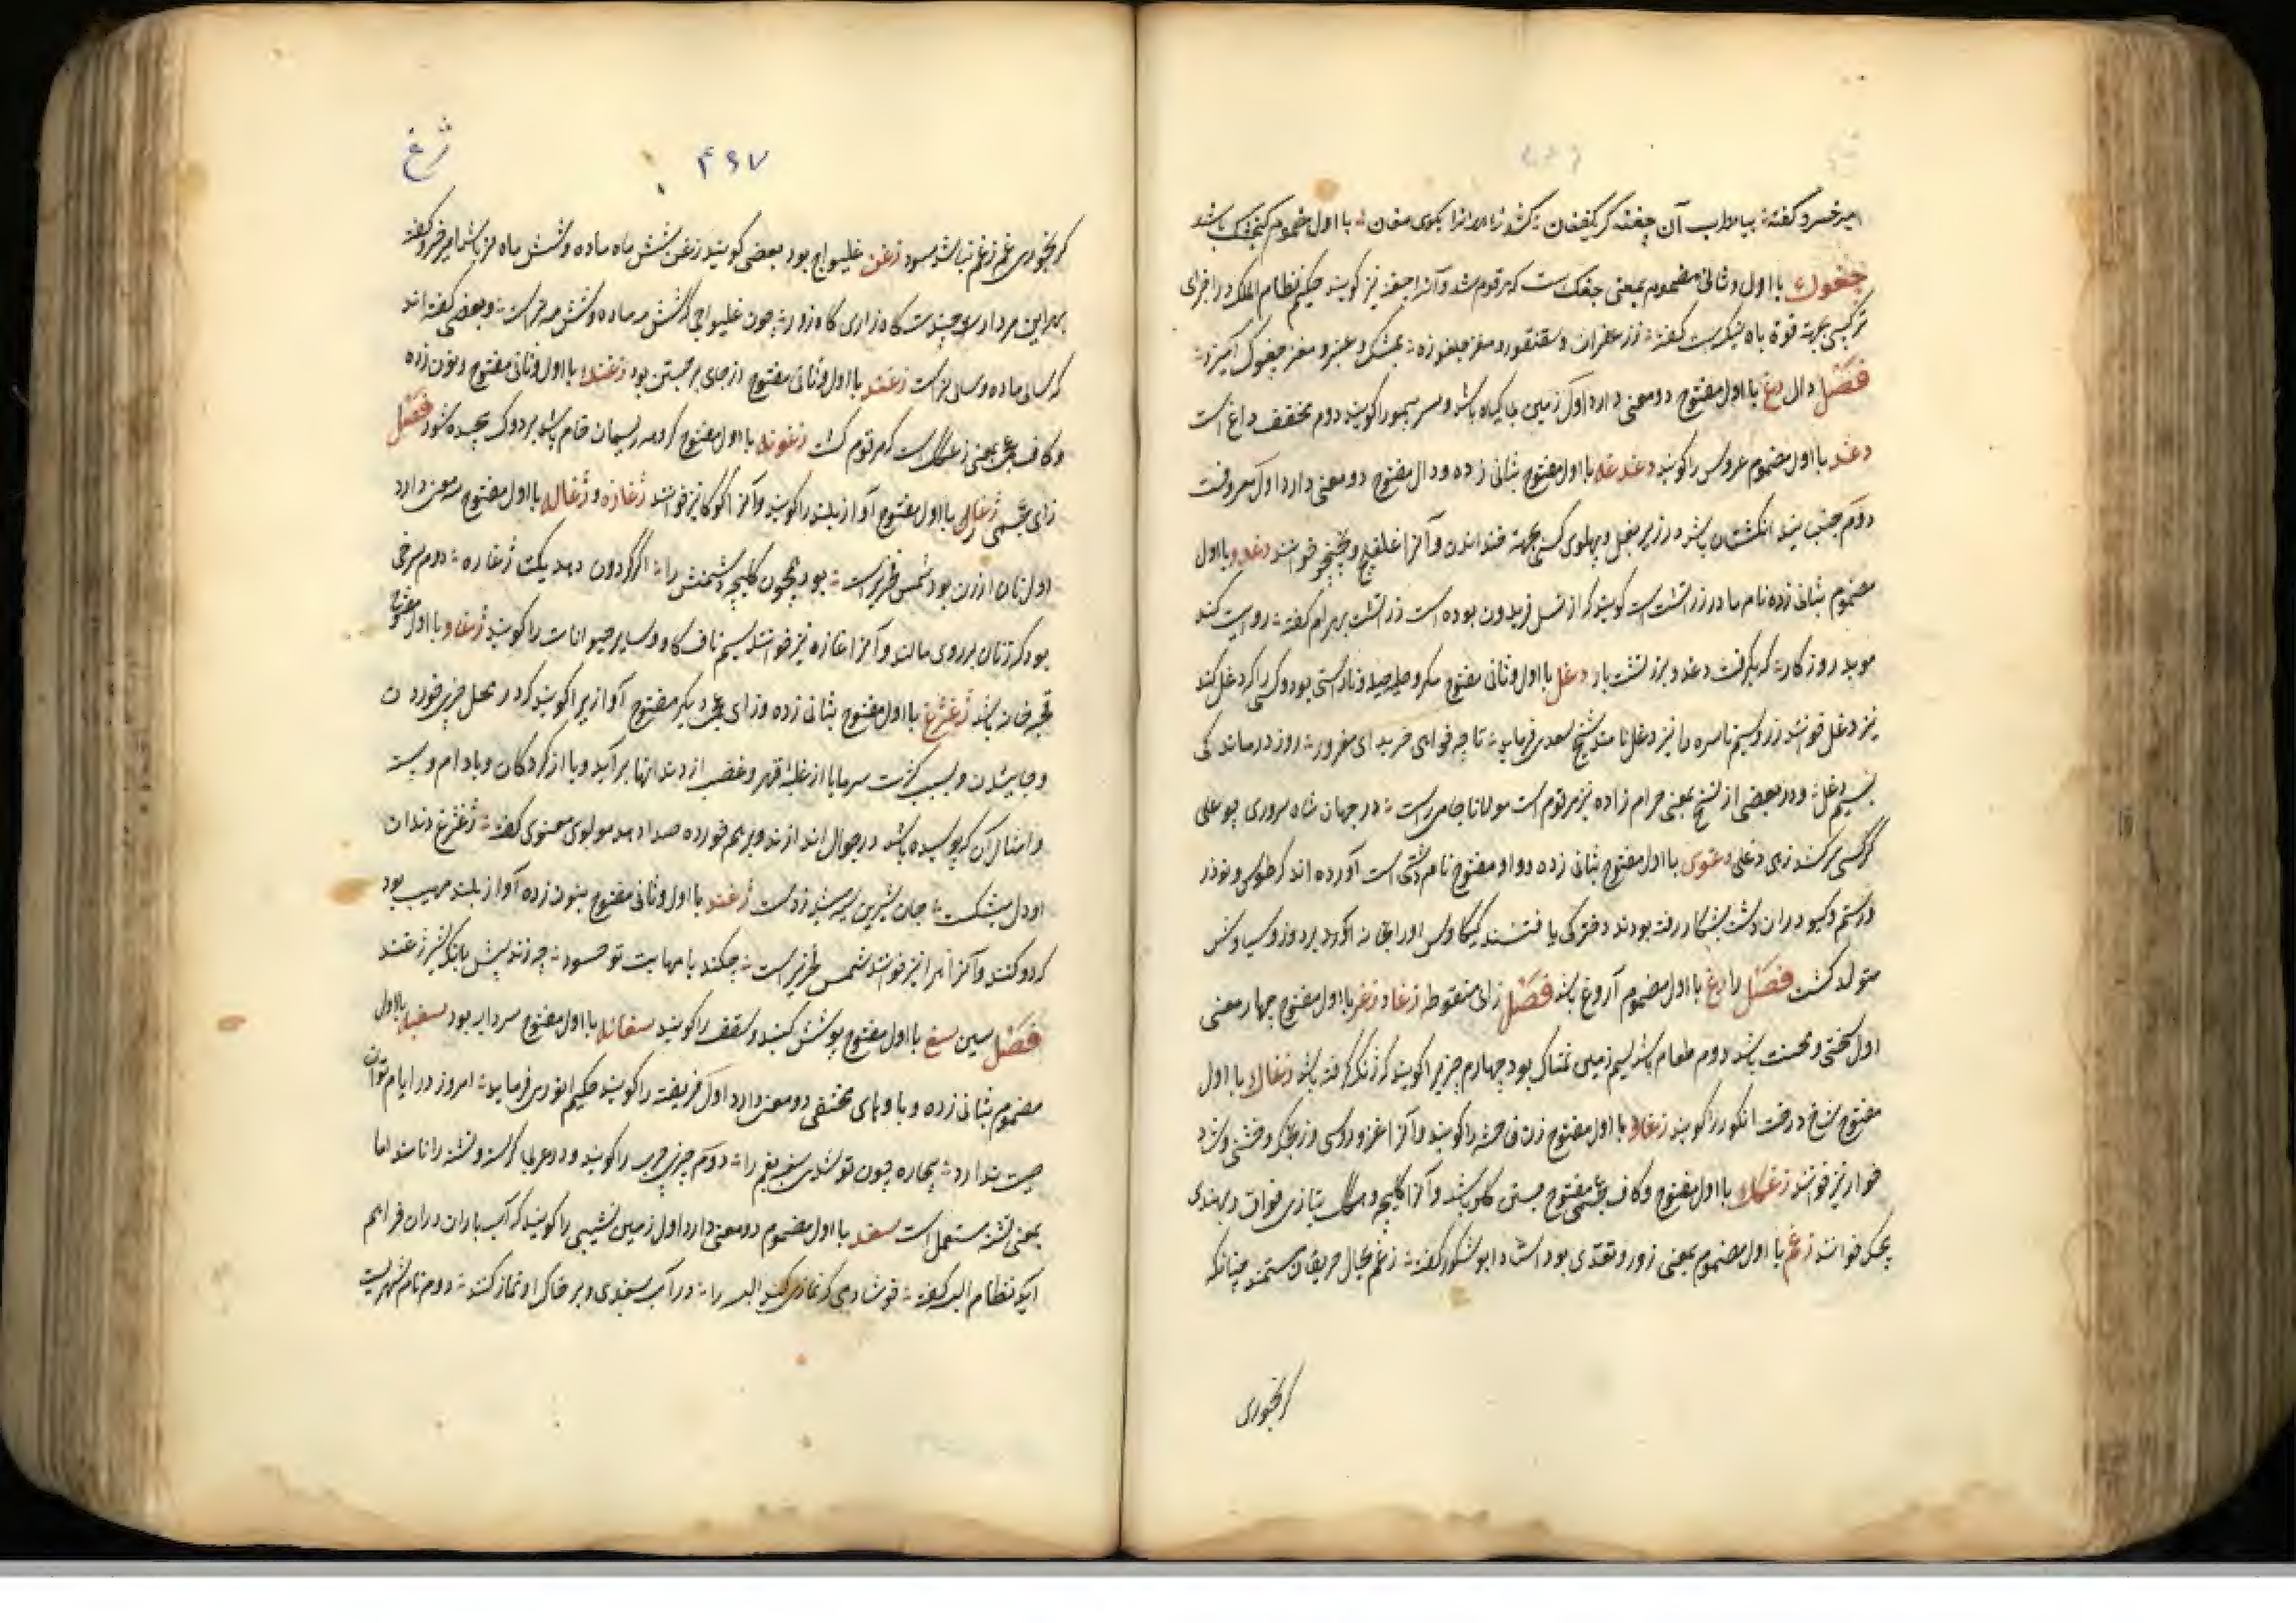 امیر خسرو کفته بیا مطرب آن چغنه کر یکفغان کشد زاهدانرا بکوی مغان با اول مضموم کنجشک باشد
جغوک با اول و ثانی مضموم بمعنی جغک است که مرقوم شد و آنرا جغنه نیز کویند حکیم نظام الملک در اجزای
ترکیبی بجهة قوة باه نیک است کفته ز زعفران و سقنقور و مغز جلغوزه بمشک و عنبر و مغز جغوک آمیزد
فصل دال دغ با اول مفتوح دو معنی دارد اول زمین بی کیاه باشد و سر بیمو را کویند دوم مخفف داغ است
دغد با اول مضموم عروس را کویند دغدغه با اول مفتوح بثانی زده و دال مفتوح دو معنی دارد اول معروفست
دوم جنبانیدن انکشتان باشد در زیر بغل و پهلوی کسی بجهة خندانیدن و آنرا غلغلیچ و پخپخو خوانند دغدو با اول
مضموم بثانی زده نام مادر زرتشت است کویند که از نسل فریدون بوده است زرتشت بهرام کفته روایت کند
موبد روزکار که بکرفت دغدو بزرتشت بار دغل با اول و ثانی مفتوح مکر و حیله و ناراستی بود و کسی را که دغل کند
نیز دغل خوانند زر و سیم ناسره را نیز دغل نامند شیخ سعدی فرماید تا چه خواهی خرید ای مغرور روز درماندکی
بسیم دغل و در بعضی از نسخ بمعنی حرام زاده نیز مرقوم است مولانا جامی راست در جهان شاه سروری چو علی
کرکسی سرکشد زهی دغلی دغوی با اول مفتوح بثانی زده و واو مفتوح نام دشتی است آورده اند که طوس و نوذر
و رستم و کیو در ان دشت بشکار رفته بودند دخترکی یافتند کیکاوس اورا بخانه آورد بر دوز و سیاوش
متولد کشت فصل را رغ با اول مضموم آروغ باشد فصل زای منقوطه زغار و زغر با اول مفتوح چهار معنی
اول سختی و محنت باشد دوم طعام باشد سیم زمین نمناک بود چهارم چیزیرا کویند که زنک کرفته باشد زغاک با اول
مفتوح شاخ درخت انکور را کویند زغاو با اول مفتوح زن فاحشه را کویند و آنرا غر و روسپی و
خوار نیز خوانند زغنک با اول مفتوح و کاف عجمی مفتوح جستن کلو باشد و آنرا و هکک بتازی فواق و بهندی
هچکی خوانند زغم با اول مضموم بمعنی زور و تعدی بود استاد ابو شکور کفته زغم بحال حریفان مستمند چنانکه
کر بخوری
۴۶۷
ژغ
کر بخوری غم زغم تباشد سود زغن غلیواج بود بعضی کویند زغن شش ماه ماده و شش ماه نر باشد امیر خسرو کفته
بهر این مردار چندت کاه زاری کاه زور چون غلیواجی که شش مه ماده و شش مه نر است و بعضی کفته اند
که سالی ماده و سالی نر است زغند با اول و ثانی مفتوح از جای برجستن بود زغنک با اول و ثانی مفتوح و نون زده
و کاف عجمی بمعنی زغنک است که مرقوم کشت زغونه با اول مفتوح کروهه ریسمان خام باشد که بر دوک پیچیده شود فصل
زای عجمی ژغار با اول مفتوح آواز بلند را کویند و آنرا نیز خوانند ژغازه و ژغاله با اول مفتوح سه معنی دارد
اول نان ارزن بود شمس فخریراست بود همچون کلیچه دشمنش را اکر کردون دهد یکتا ژغاره دوم سرخی
بود که زنان بر روی مالند و آنرا غازه نیز خوانند سیم ناف کاو و سایر حیوانات را کویند ژغاو با اول مفتوح
قحبه خانه باشد ژغژغ با اول مفتوح بثانی زده و زای عجمی دیکر مفتوح آوازیرا کویند که در محل چیزی خوردن
و خائیدن و بسبب کثرت سرما یا از غلبهٔ قهر و غضب از دندانها برآید و یا از کردکان و بادام و پسته
و امثال آن که پوسیده باشد در جوال اندازند و بر هم خورده صدا دهد مولوی معنوی کفته ژغژغ دندان
او دل میشکست جان شیران سیه میشد ز دست ژغند با اول و ثانی مفتوح بنون زده آواز بلند مهیب بود
که دد کند و آنرا نیز خوانند شمس فخریراست چکند با مهابت تو حسود چه زند پیش بانک شیر ژغند
فصل سین سغ با اول مفتوح پوشش کنبد و سقف را کویند سغانه با اول مفتوح سردابه بود سغبه با اول
مضموم بثانی زده و با و های مختفی دو معنی دارد اول فریفته را کویند حکیم انوری فرماید امروز در ایام توان
چست ندارد بیچاره سغبه را دوم چیزی چرب را کویند و در عربی کرسنه و تشنه را نامند اما
بمعنی تشنه مستعمل است سغد با اول مضموم دو معنی دارد اول زمین نشیبی را کویند که آب باران در ان فراهم
آید نظام الدین کفته خوشا دمی که نمازی کنید را در آب سغدی و بر خاک او نماز کند دوم نام شهریست